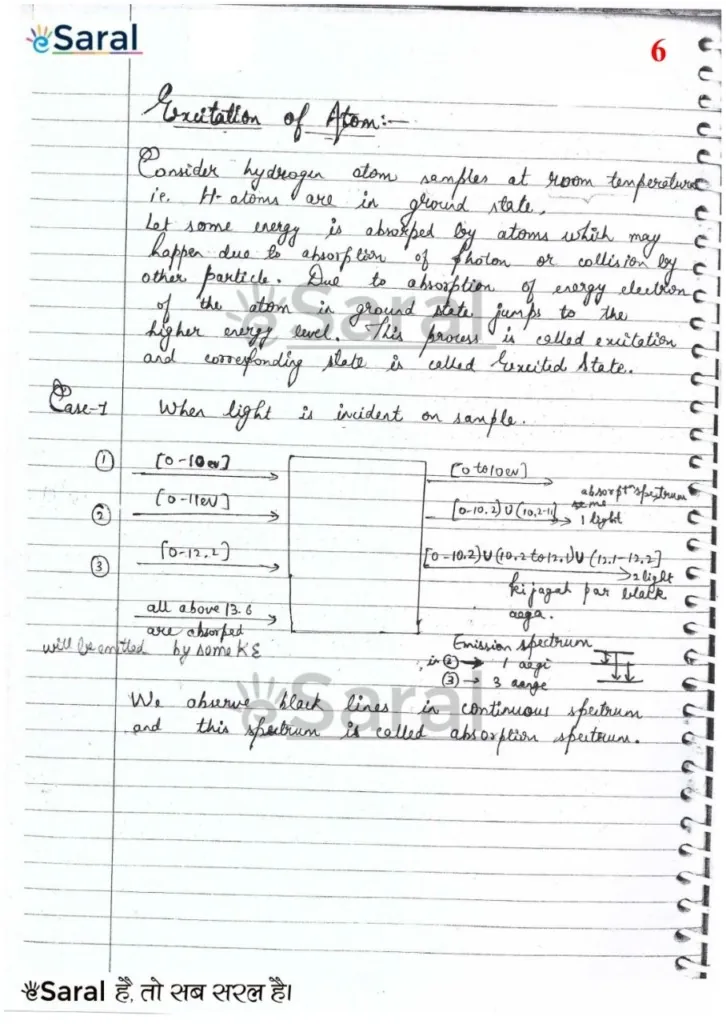 eSaral
6
Excitation of Atom:-
Consider hydrogen atom samples at room temperature
i.e. H-atoms are in ground state.
Let some energy is absorped by atoms which may
happen due to absorption of photon or collision by
other particle. Due to absorption of energy electron
of the atom in ground state jumps to the
higher energy level. This process is called excitation
and corresponding state is called Excited State.
Case-1 When light is incident on sample.
① [0-10ev] [0 to 10ev]
② [0-11eV] [0-10.2) U (10.2-11] absorptn spectrum
1 light
③ [0-12.2] [0-10.2) U (10.2 to 12.1) U (12.1-12.2]
2 light
ki jagah par black
aega.
all above 13.6
are absorped
will be emitted by some KE
Emission spectrum
in ② → 1 aegi
③ → 3 aange
We observe black lines in continuous spectrum
and this spectrum is called absorption spectrum.
eSaral
eSaral
eSaral है, तो सब सरल है।